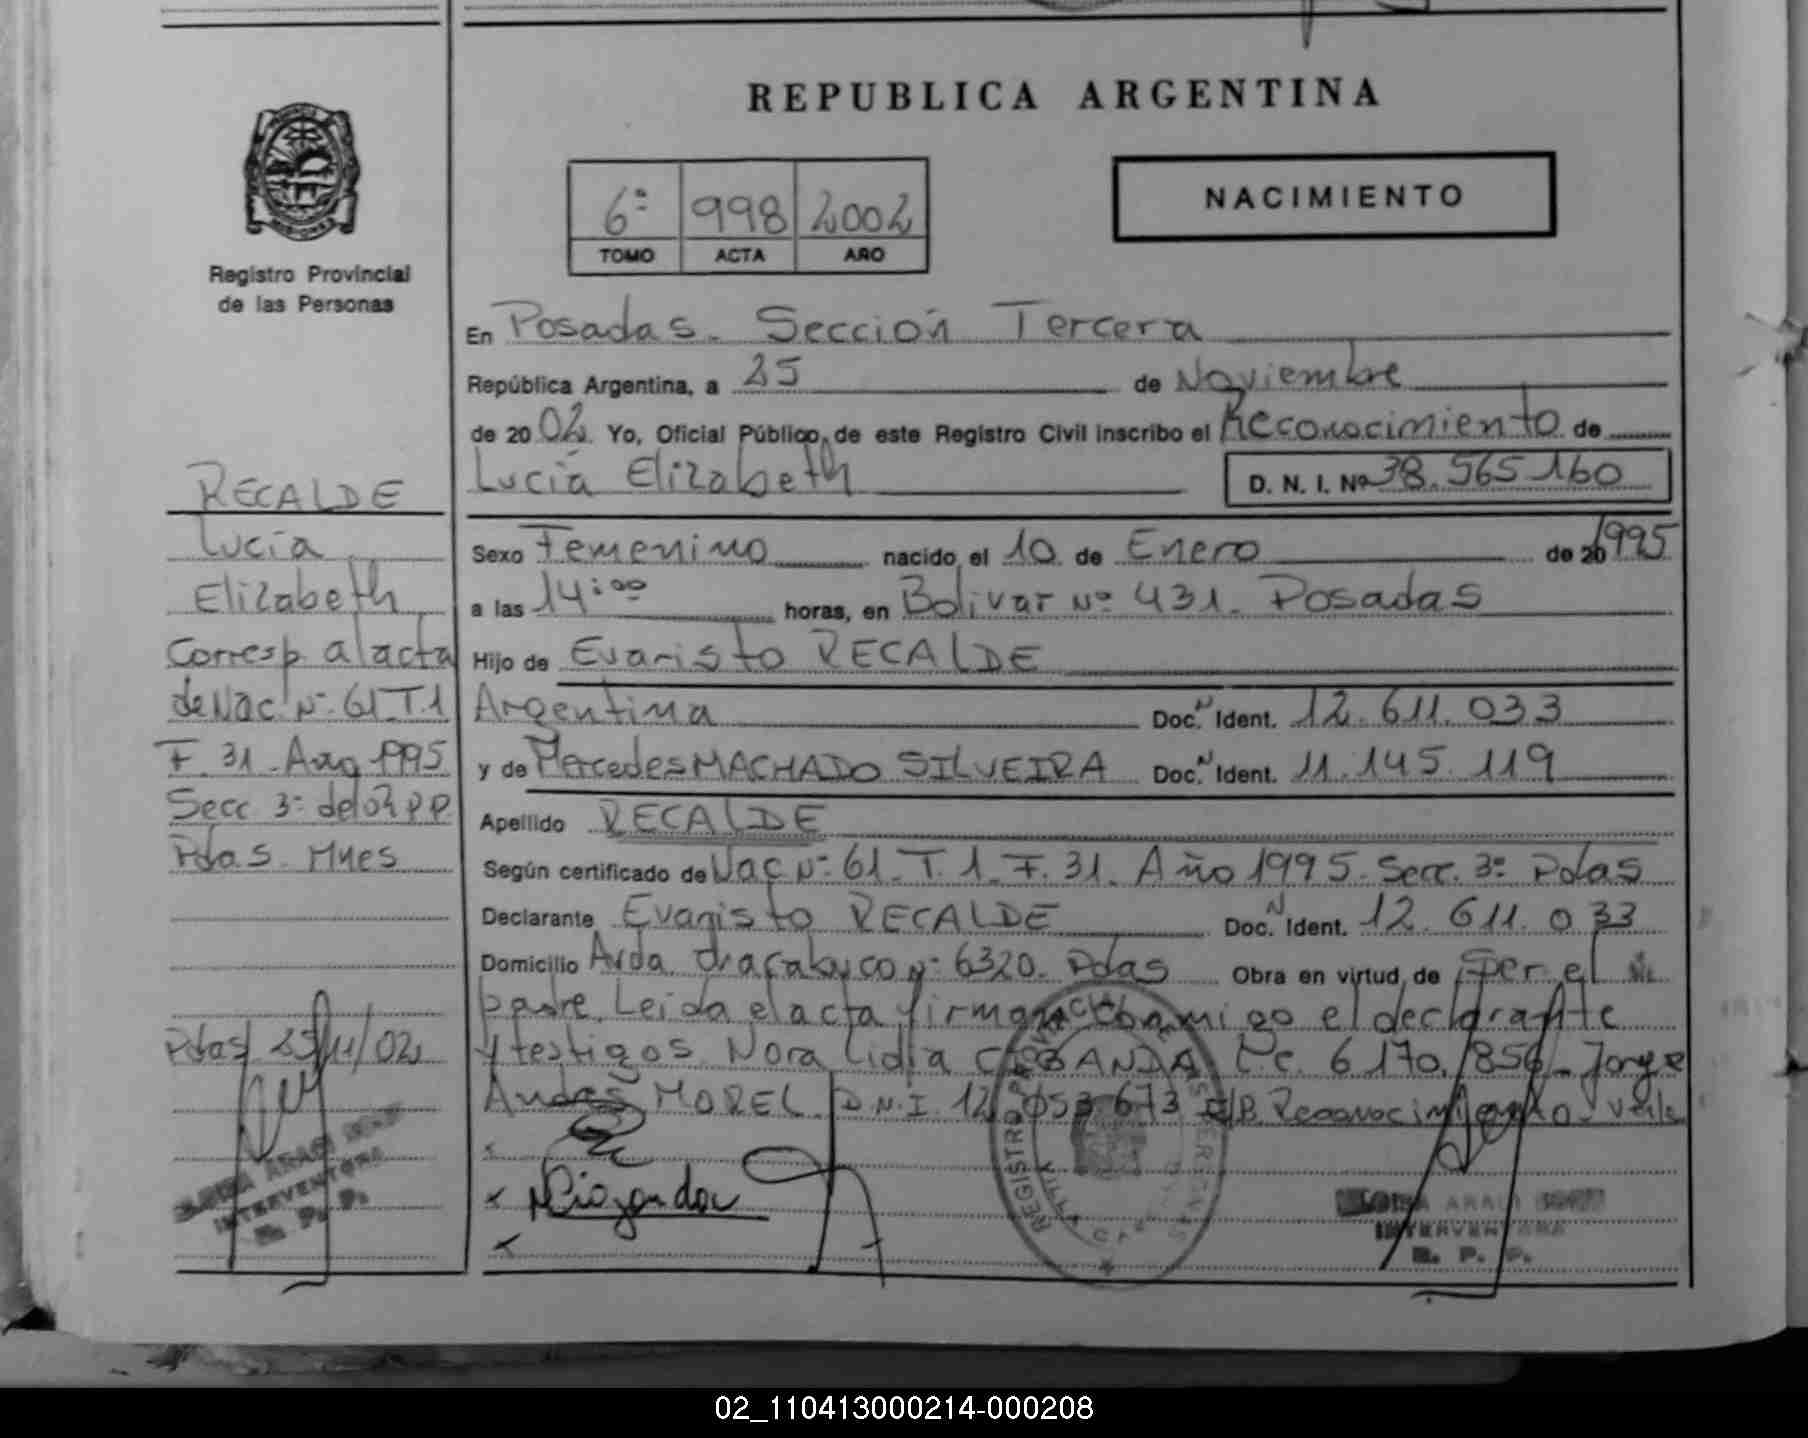 REPUBLICA ARGENTINA
NACIMIENTO
6º 998 2002
TOMO ACTA AÑO
Registro Provincial
de las Personas
En Posadas. Sección Tercera
República Argentina, a 25 de Noviembre
de 2002. Yo, Oficial Público, de este Registro Civil inscribo el Reconocimiento de
Lucía Elizabeth D. N. I. Nº 38.565.160
Sexo Femenino nacido el 10 de Enero de 20 1995
a las 14:00 horas, en Bolivar Nº 431. Posadas
Hijo de Evaristo RECALDE
Argentina Doc. N Ident. 12.611.033
y de Mercedes MACHADO SILVEIRA Doc. N Ident. 11.145.119
Apellido RECALDE
Según certificado de Nac Nº 61. T. 1. F. 31. Año 1995. Secc. 3º Pdas
Declarante Evaristo RECALDE Doc. N Ident. 12.611.033
Domicilio Avda Chacabuco Nº 6320. Pdas Obra en virtud de ser el
padre. Leida el acta firman conmigo el declarante
y testigos Nora Lidia L.C. 6.170.856 - Jorge
Andrés MOREL D.N.I. 12.053.673 Reconocimiento - Vale
RECALDE
Lucía
Elizabeth
Corresp al acta
de Nac Nº 61 T.1
F. 31. Año 1995
Secc 3º del R.P.P.
Pdas. Mnes
Pdas 25/11/02
INTERVENTORA
R. P. P.
INTERVENTORA
R. P. P.
02_110413000214-000208